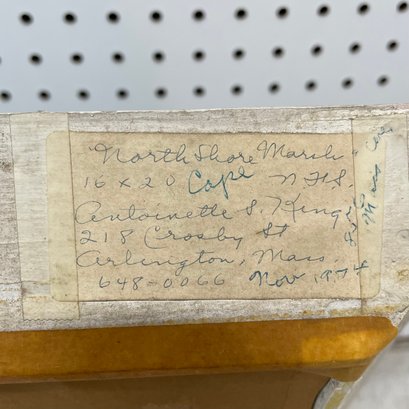 "North Shore Marsh"
16 x 20 Cape N.F.S.
Antoinette S. King
218 Crosby St
Arlington, Mass.
648-0066 Nov. 1974